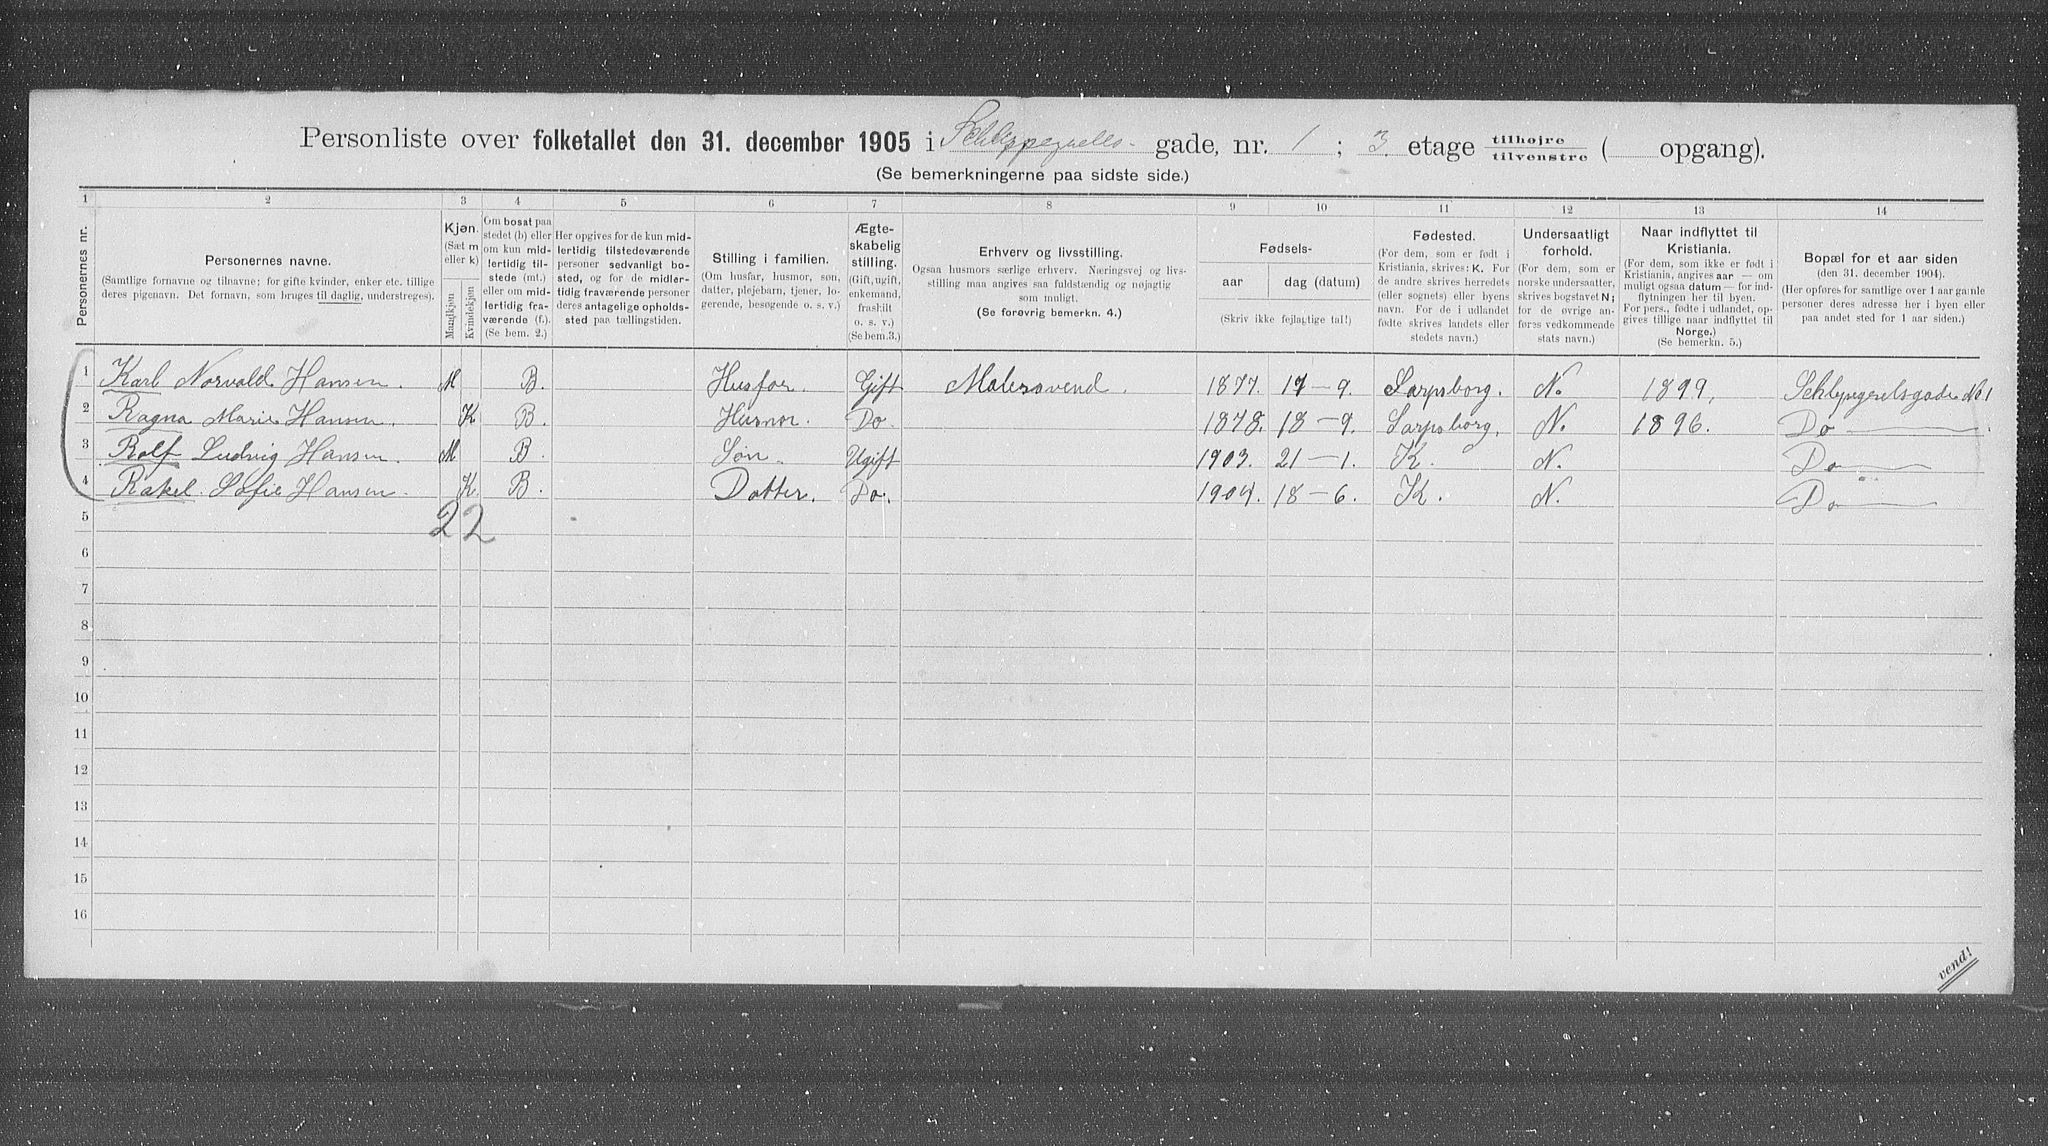 Personliste over folketallet den 31. december 1905 i Schleppegrells- gade, nr. 1 ; 3. etage tilhøjre / tilvenstre ( opgang).
(Se bemerkningerne paa sidste side.)
1 2 3 4 5 6 7 8 9 10 11 12 13 14
Personernes nr.
Personernes navne.
(Samtlige fornavne og tilnavne; for gifte kvinder, enker etc. tillige
deres pigenavn. Det fornavn, som bruges til daglig, understreges).
Kjøn.
(Sæt m
eller k)
Mandkjøn
Kvindekjøn
Om bosat paa
stedet (b) eller
om kun mid-
lertidig til-
stede (mt.)
eller om mid-
lertidig fra-
værende (f.).
(Se bem. 2.)
Her opgives for de kun mid-
lertidig tilstedeværende
personer sedvanlig bo-
sted, og for de midler-
tidig fraværende personer
deres antagelige opholds-
sted paa tællingstiden.
Stilling i familien.
(Om husfar, husmor, søn,
datter, plejebarn, tjener, lo-
gerende, besøgende o. s. v.)
Ægte-
skabelig
stilling.
(Gift, ugift,
enkemand,
fraskilt
o. s. v.)
(Se bem.3.)
Erhverv og livsstilling.
Ogsaa husmors særlige erhverv. Næringsvej og livs-
stilling maa angives saa fuldstændig og nøjagtig
som muligt.
(Se forøvrig bemerkn. 4.)
Fødsels-
aar dag (datum)
(Skriv ikke fejlagtige tal!)
Fødested.
(For dem, som er født i
Kristiania, skrives: K. For
de andre skrives herredets
(eller sognets) eller byens
navn. For de i udlandet
fødte skrives landets eller
stedets navn.)
Undersaatligt
forhold.
(For dem, som er
norske undersaatter,
skrives bogstavet N;
for de øvrige an-
føres vedkommende
stats navn.)
Naar indflyttet til
Kristiania.
(For dem, som ikke er født i
Kristiania, angives aar — om
muligt ogsaa datum — for ind-
flytningen her til byen.
For pers., fødte i udlandet, op-
gives tillige naar indflyttet til
Norge.)
(Se bemerkn. 5.)
Bopæl for et aar siden
(den 31. december 1904).
(Her opføres for samtlige over 1 aar gamle
personer deres adresse her i byen eller
paa andet sted for 1 aar siden.)
1 Karl Norvald Hansen. M B. Husfar. Gift Malersvend. 1877. 17-9. Sarpsborg. N. 1899. Schleppegrelsgade No 1
2 Ragna Marie Hansen. K B. Husmor. Do. 1878. 18-9. Sarpsborg. N. 1896. Do
3 Rolf Ludvig Hansen. M B. Søn. Ugift 1903. 21-1. K. N. Do
4 Rakel. Sofie Hansen. K. B. Datter. Do. 1904. 18-6. K. N. Do
2 2
5
6
7
8
9
10
11
12
13
14
15
16
vend!